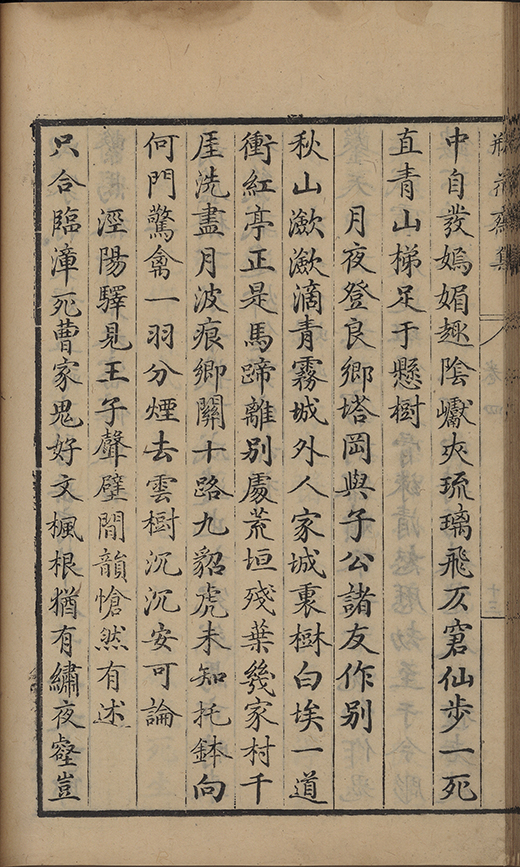 瓶花齋集 卷四 十三
中自發嫣媚趣陰巘夾琉璃飛仄窘仙步一死
直青山梯足于懸樹
月夜登良鄉塔岡與子公諸友作別
秋山潄潄滴青霧城外人家城裏樹白埃一道
衝紅亭正是馬蹄離別處荒垣殘葉幾家村千
厓洗盡月波痕鄉關十路九貂虎未知托鉢向
何門驚禽一羽分煙去雲樹沉沉安可論
涇陽驛見王子聲壁間韻愴然有述
只合臨漳死曹家鬼好文楓根猶有繡夜壑豈